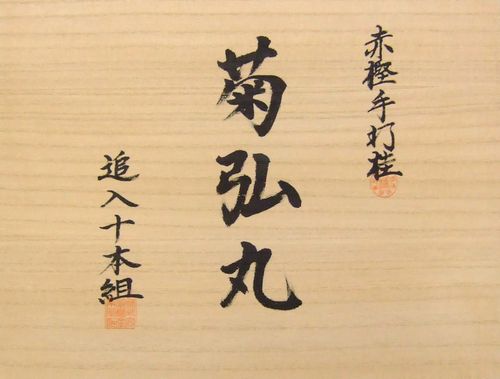 赤樫手打桂
菊弘丸
追入十本組